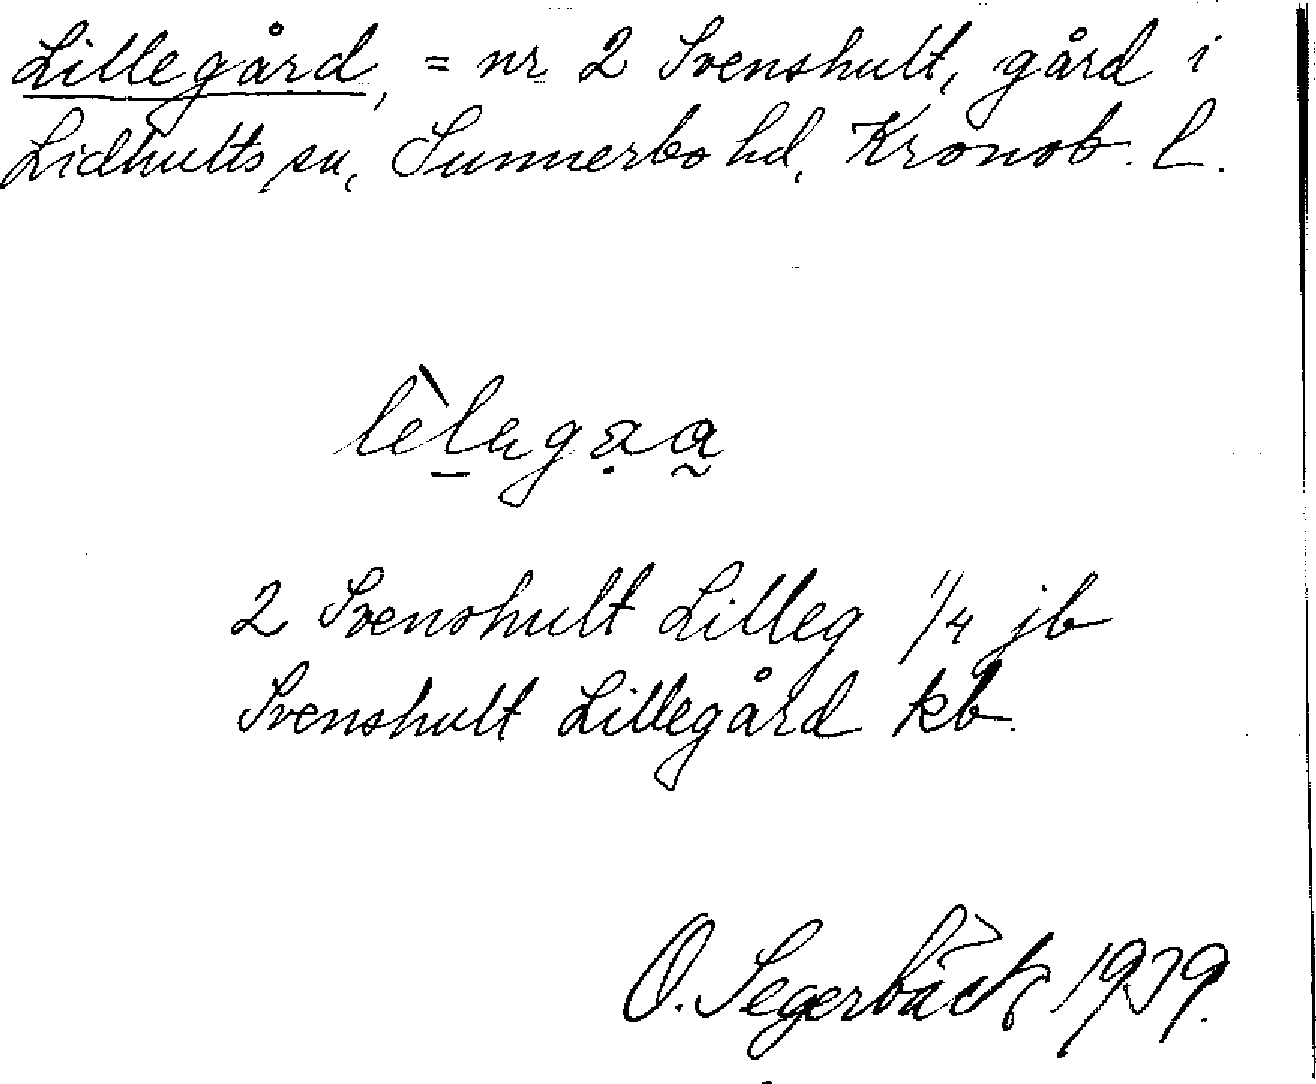 Lillegård, = nr 2 Svenshult, gård i
Lidhults sn, Sunnerbo hd, Kronob. l.
2 Svenshult Lilleg 1/4 jb
Svenshult Lillegård kb.
O. Segerbäck 1939.